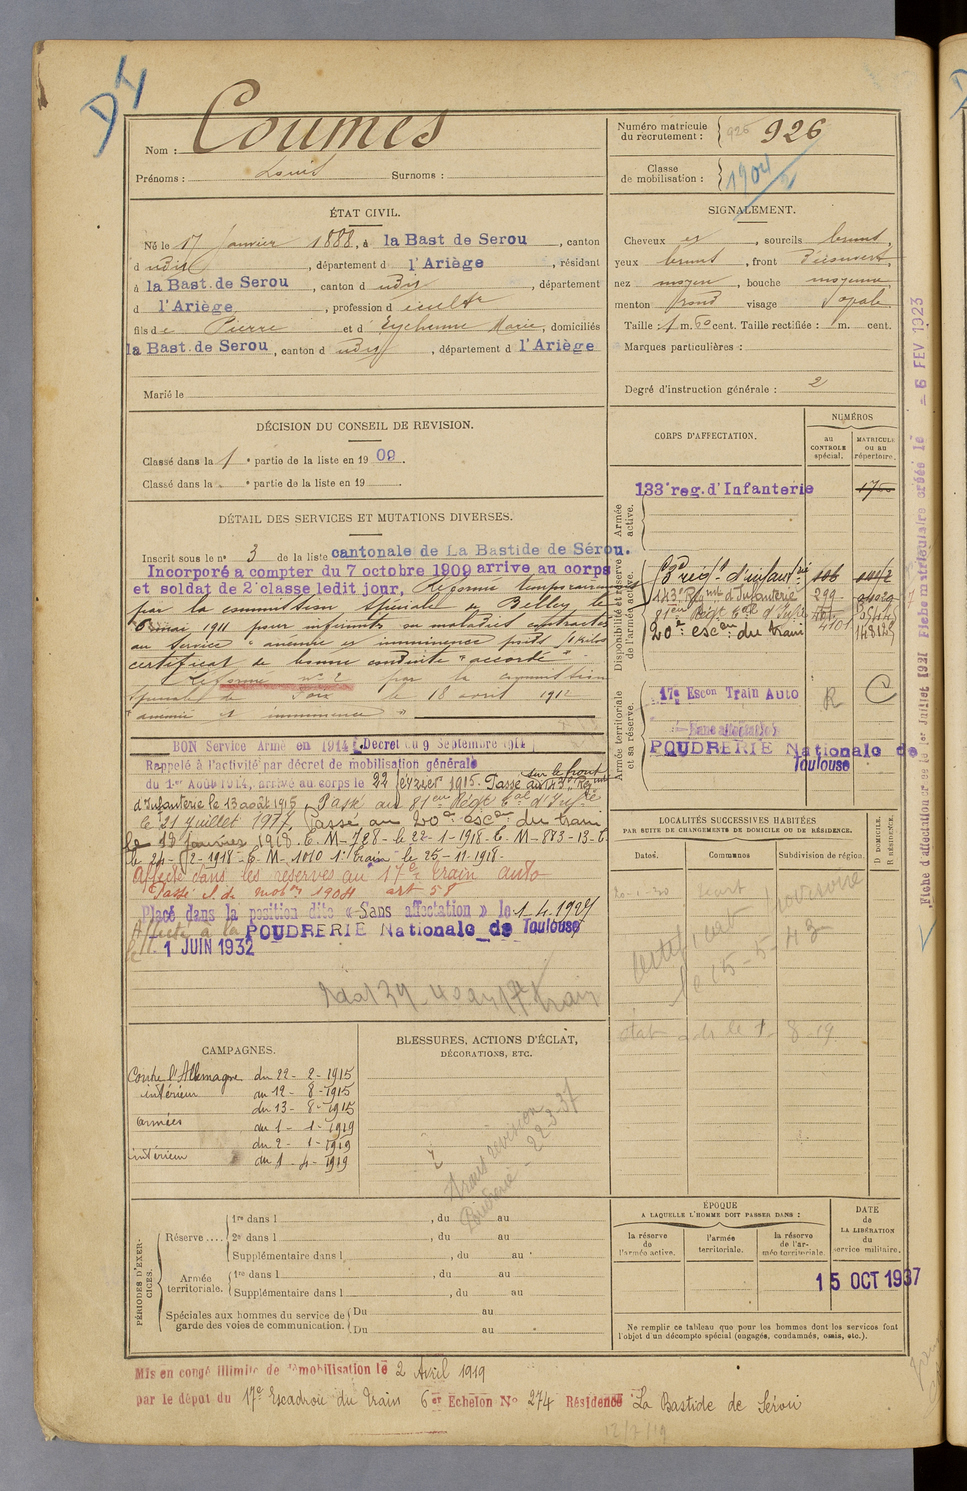 D4
Nom : Coumes
Prénoms : Louis Surnoms :
Numéro matricule du recrutement : 926 926
Classe de mobilisation : 1904
ÉTAT CIVIL.
Né le 17 Janvier 1888, à la Bast de Serou, canton
d udit, département d l'Ariège, résidant
à la Bast. de Serou, canton d udit, département
d l'Ariège, profession d cultr
fils de Pierre et d'Eychenne Marie, domiciliés
la Bast. de Serou, canton d udit, département d l'Ariège
Marié le
SIGNALEMENT.
Cheveux et, sourcils bruns,
yeux bruns, front découvert,
nez moyen, bouche moyenne
menton rond visage ovale
Taille : 1 m. 60 cent. Taille rectifiée : 1 m. cent.
Marques particulières :
Degré d'instruction générale : 2
DÉCISION DU CONSEIL DE REVISION.
Classé dans la 1e partie de la liste en 1909.
Classé dans la e partie de la liste en 19
DÉTAIL DES SERVICES ET MUTATIONS DIVERSES.
Inscrit sous le n° 3 de la liste cantonale de La Bastide de Sérou.
Incorporé a compter du 7 octobre 1909 arrive au corps
et soldat de 2e classe ledit jour, Réformé temporairement
par la commission spéciale de Belley le
6 mai 1911 pour infirmités ou maladies contractées
au service "anémie et imminence
certificat de bonne conduite "accordé"
Réforme n° 2 par la commission
spéciale de Foix le 18 avril 1912
"anémie et imminence"
BON Service Armé en 1914, Decret du 9 Septembre 1914
Rappelé à l'activité par décret de mobilisation générale
du 1er Août 1914, arrivé au corps le 22 février 1915. Passé sur le front au 143e Regimt
d'Infanterie le 13 août 1915, Passé au 81eme Régt Tal d'Infie
le 21 juillet 1917, Passé au 20e escon du train
le 13 janvier 1918. C. M- 728- le 22-1-1918- C. M- 873-13-C.
le 24-12-1918- C. M. 1010 1er train le 25-11-1918-
Affecté dans les réserves au 17e train auto
Passé cl. de mobon 1904 art 58
Placé dans la position dite « Sans affectation » le 1-4-1927
Affecté à la POUDRERIE Nationale de Toulouse
le 1 JUIN 1932
CORPS D'AFFECTATION.
NUMÉROS
au CONTROLE spécial.
MATRICULE ou au répertoire.
Armée active.
133e reg. d'Infanterie 1750
Disponibilité et réserve de l'armée active.
regt d'infantrie 106
143e Regmt d'Infanterie 299
81eme Régt Tal d'Infie
20e escon du train 4101 14312
Armée territoriale et sa réserve.
17e Escon Train Auto R C
Sans affectation
POUDRERIE Nationale de
Toulouse
LOCALITÉS SUCCESSIVES HABITÉES
PAR SUITE DE CHANGEMENTS DE DOMICILE OU DE RÉSIDENCE.
Dates. Communes Subdivision de région. D DOMICILE. R RÉSIDENCE.
certificat provisoire
le 15-5-43
CAMPAGNES.
Contre l'Allemagne du 22-2-1915
intérieur au 12-8-1915
du 13-8-1915
armées au 1-1-1919
du 2-1-1919
intérieur au 1-4-1919
BLESSURES, ACTIONS D'ÉCLAT,
DÉCORATIONS, ETC.
révision
Poudrerie 22-3-37
PÉRIODES D'EXERCICES.
Réserve .... 1re dans l , du au
2e dans l , du au
Supplémentaire dans l , du au
Armée territoriale. 1re dans l , du au
Supplémentaire dans l , du au
Spéciales aux hommes du service de garde des voies de communication. Du au
Du au
ÉPOQUE
A LAQUELLE L'HOMME DOIT PASSER DANS :
la réserve de l'armée active.
l'armée territoriale.
la réserve de l'armée territoriale.
DATE de LA LIBÉRATION du service militaire.
15 OCT 1937
Ne remplir ce tableau que pour les hommes dont les services font
l'objet d'un décompte spécial (engagés, condamnés, omis, etc.).
Mis en congé illimité de démobilisation le 2 Avril 1919
par le dépot du 17e Escadron du train 6e Echelon N° 274 Résidence La Bastide de Sérou
12/7/19
Fiche d'affectation créée le 1er Juillet 1921 Fiche mnestregiaire créée le - 6 FEV 1923